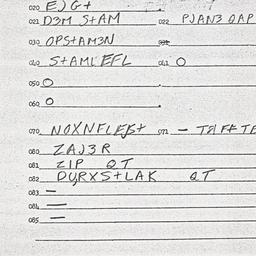 020 EJG+
021 D3M S+AM 022 PJAN3 QAP
030 OPS+AM3N
040 S+AMLEFL 041 O
050 O
060 O
070 071 –
080 ZAJ3R
081 ZIP QT
082 DURXS+LAK QT
083 –
084 –
085 –